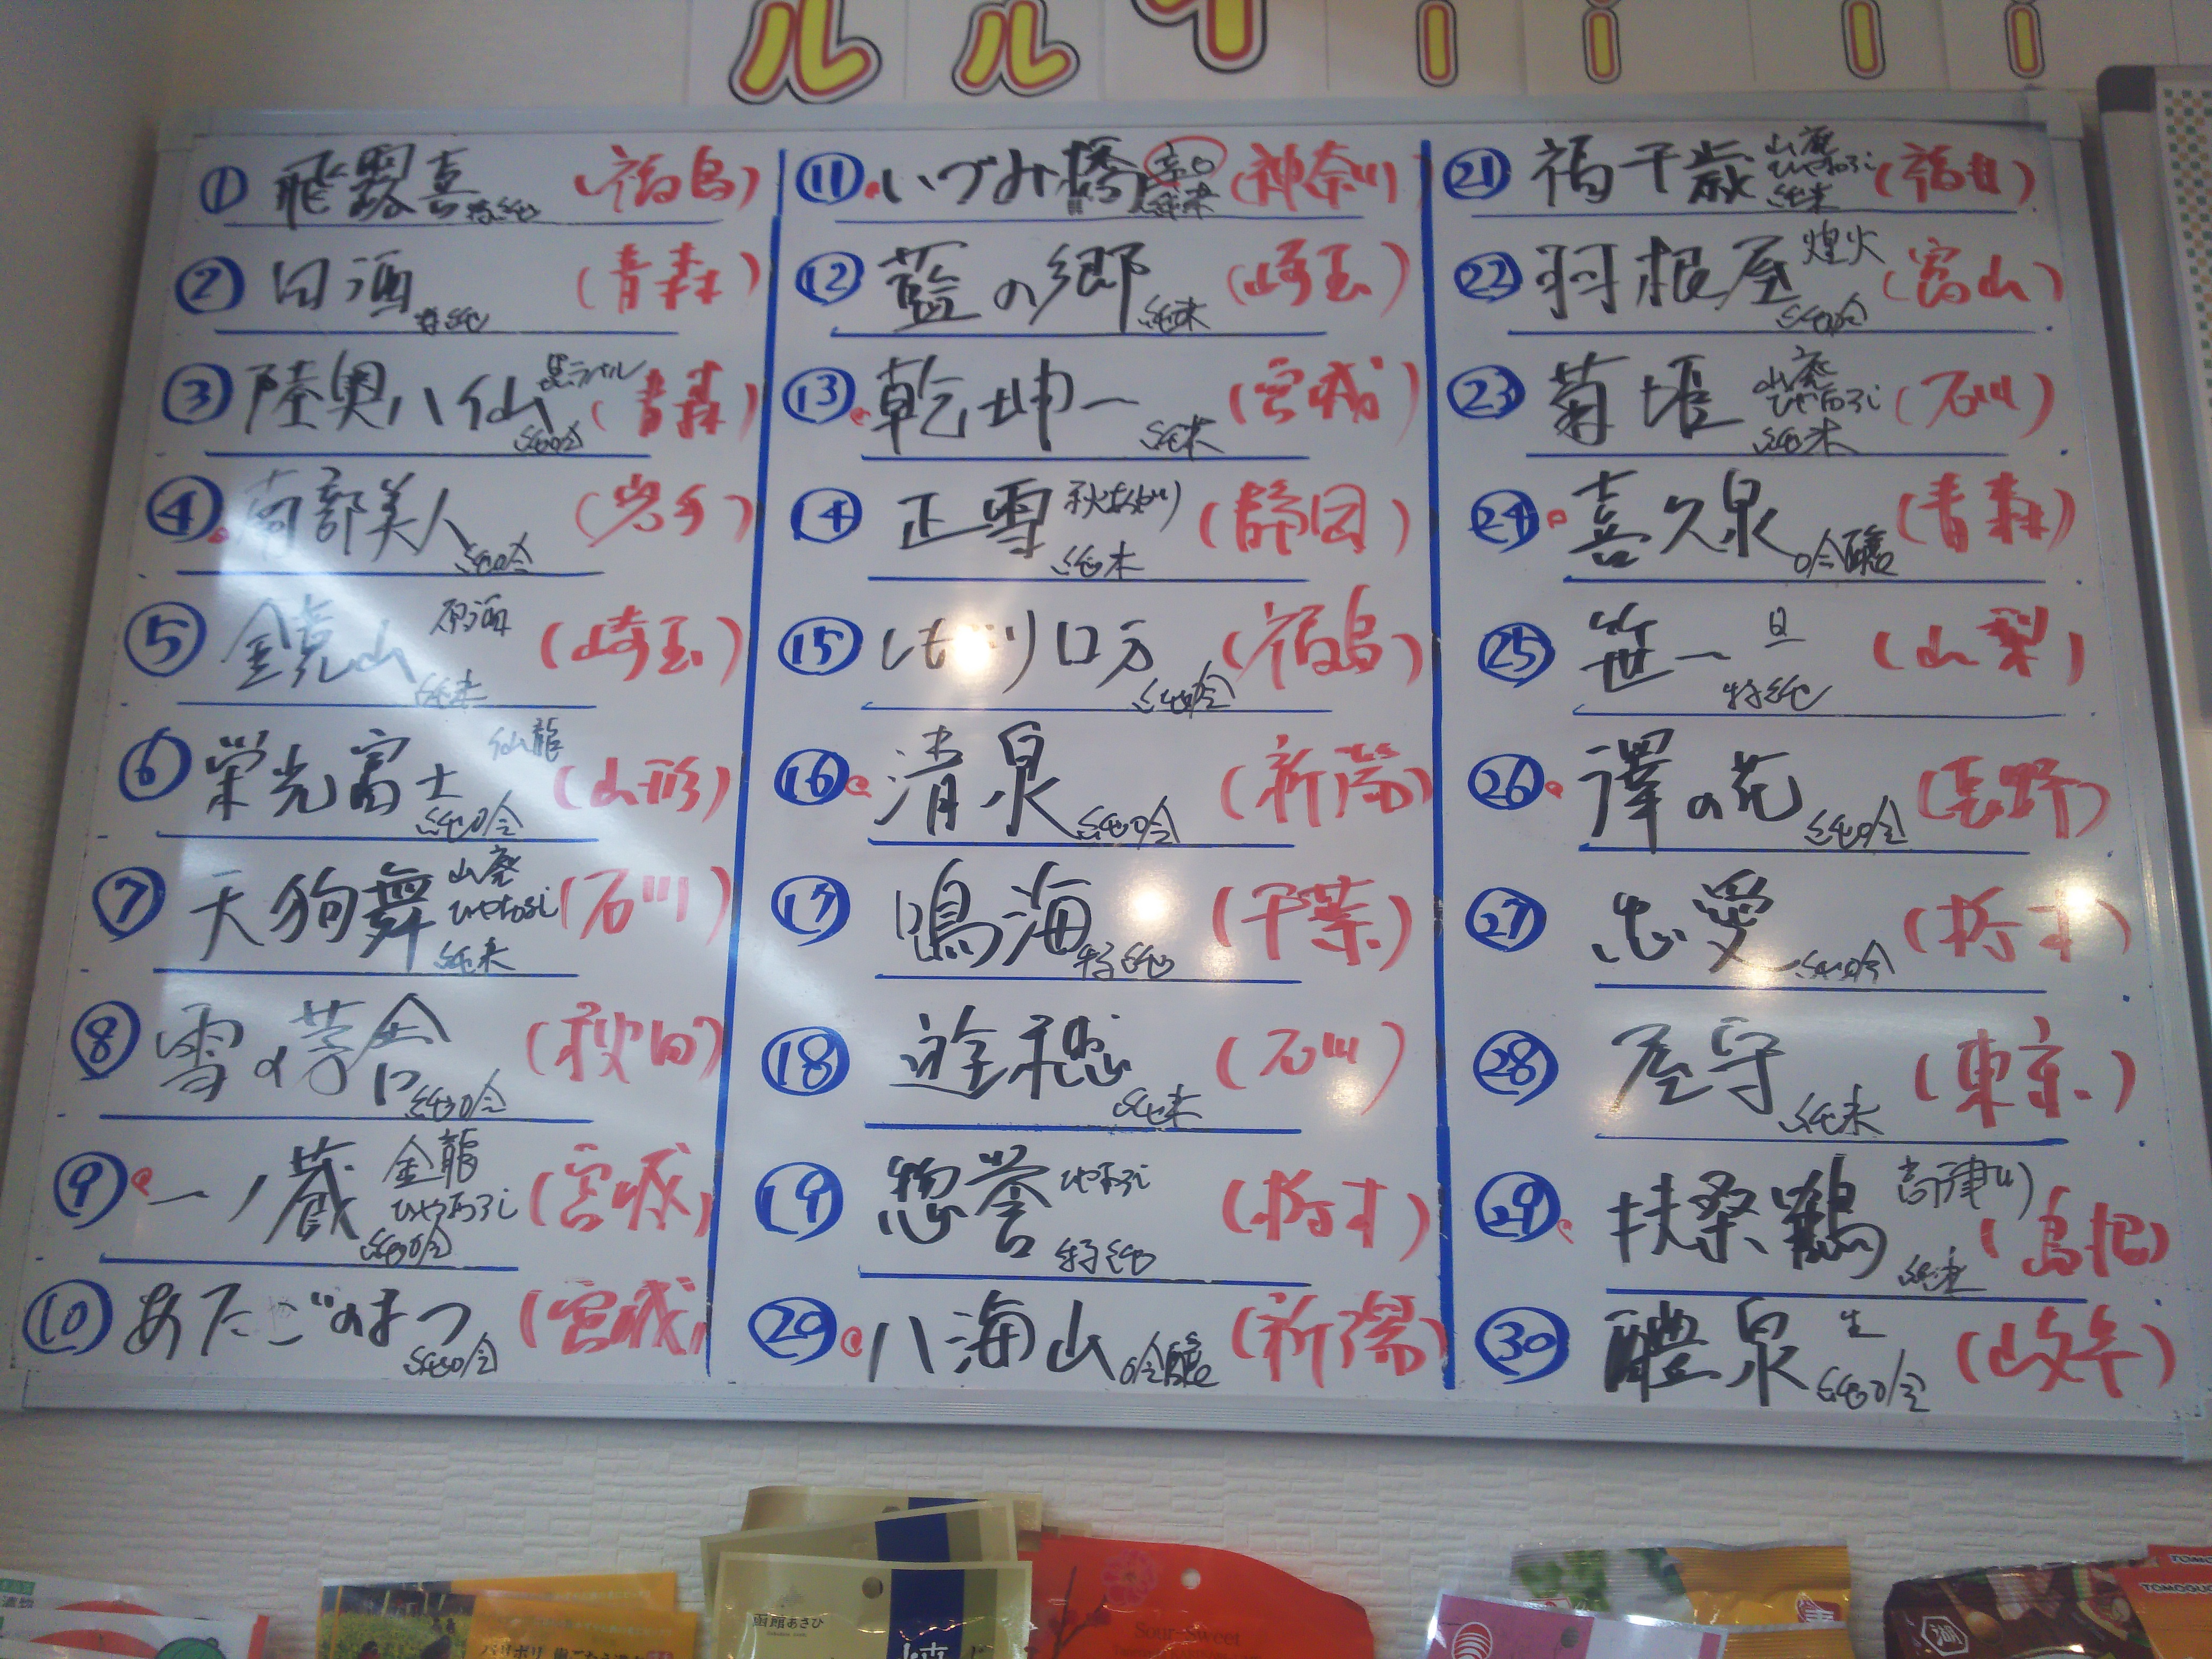 ① 飛露喜 特純 (福島)
② 田酒 特純 (青森)
③ 陸奥八仙 黒ラベル 純吟 (青森)
④ 南部美人 純吟 (岩手)
⑤ 鏡山 原酒 純米 (埼玉)
⑥ 栄光冨士 仙龍 純吟 (山形)
⑦ 天狗舞 山廃 ひやおろし 純米 (石川)
⑧ 雪の茅舎 純吟 (秋田)
⑨ 一ノ蔵 金龍 ひやおろし 純吟 (宮城)
⑩ あたごのまつ 純吟 (宮城)
⑪ いづみ橋 辛口 純米 (神奈川)
⑫ 藍の郷 純米 (埼玉)
⑬ 乾坤一 純米 (宮城)
⑭ 正雪 秋あがり 純米 (静岡)
⑮ ロ万 純吟 (福島)
⑯ 清泉 純吟 (新潟)
⑰ 鳴海 特純 (千葉)
⑱ 遊穂 純米 (石川)
⑲ 惣誉 ひやおろし 特純 (栃木)
⑳ 八海山 吟醸 (新潟)
㉑ 福千歳 山廃 ひやおろし 純米 (福井)
㉒ 羽根屋 煌火 純吟 (富山)
㉓ 菊姫 山廃 ひやおろし 純米 (石川)
㉔ 喜久泉 吟醸 (青森)
㉕ 笹一 旦 特純 (山梨)
㉖ 澤の花 純吟 (長野)
㉗ 忠愛 純吟 (栃木)
㉘ 屋守 純米 (東京)
㉙ 扶桑鶴 高津川 純米 (島根)
㉚ 醴泉 生 純吟 (岐阜)
函館あさひ
Sour-Sweet